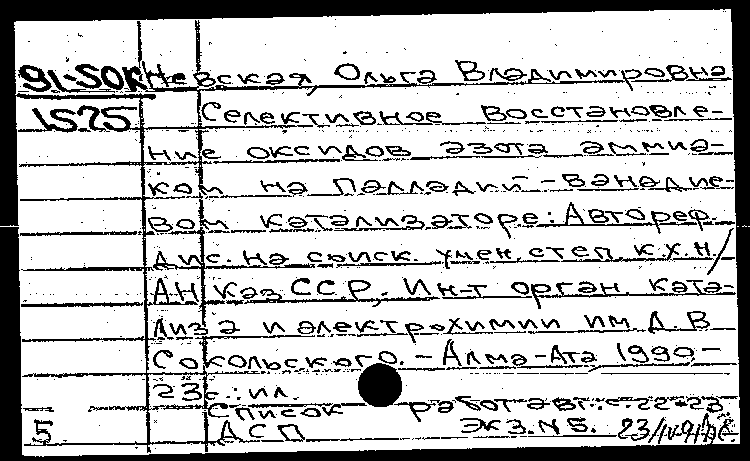 91-50К Невская, Ольга Владимировна
1575 Селективное восстановле-
ние оксидов азота аммиа-
ком на палладий-ванадие-
вом катализаторе: Автореф.
дис. на соиск. учен. степ. к.х.н/
АН Каз ССР, Ин-т орган. ката-
лиза и электрохимии им Д. В
Сокольского. - Алма-Ата, 1990 -
23с.: ил.
Список работ авт.: с. 22-23
5 ДСП Экз. N 5. 23/IV-91